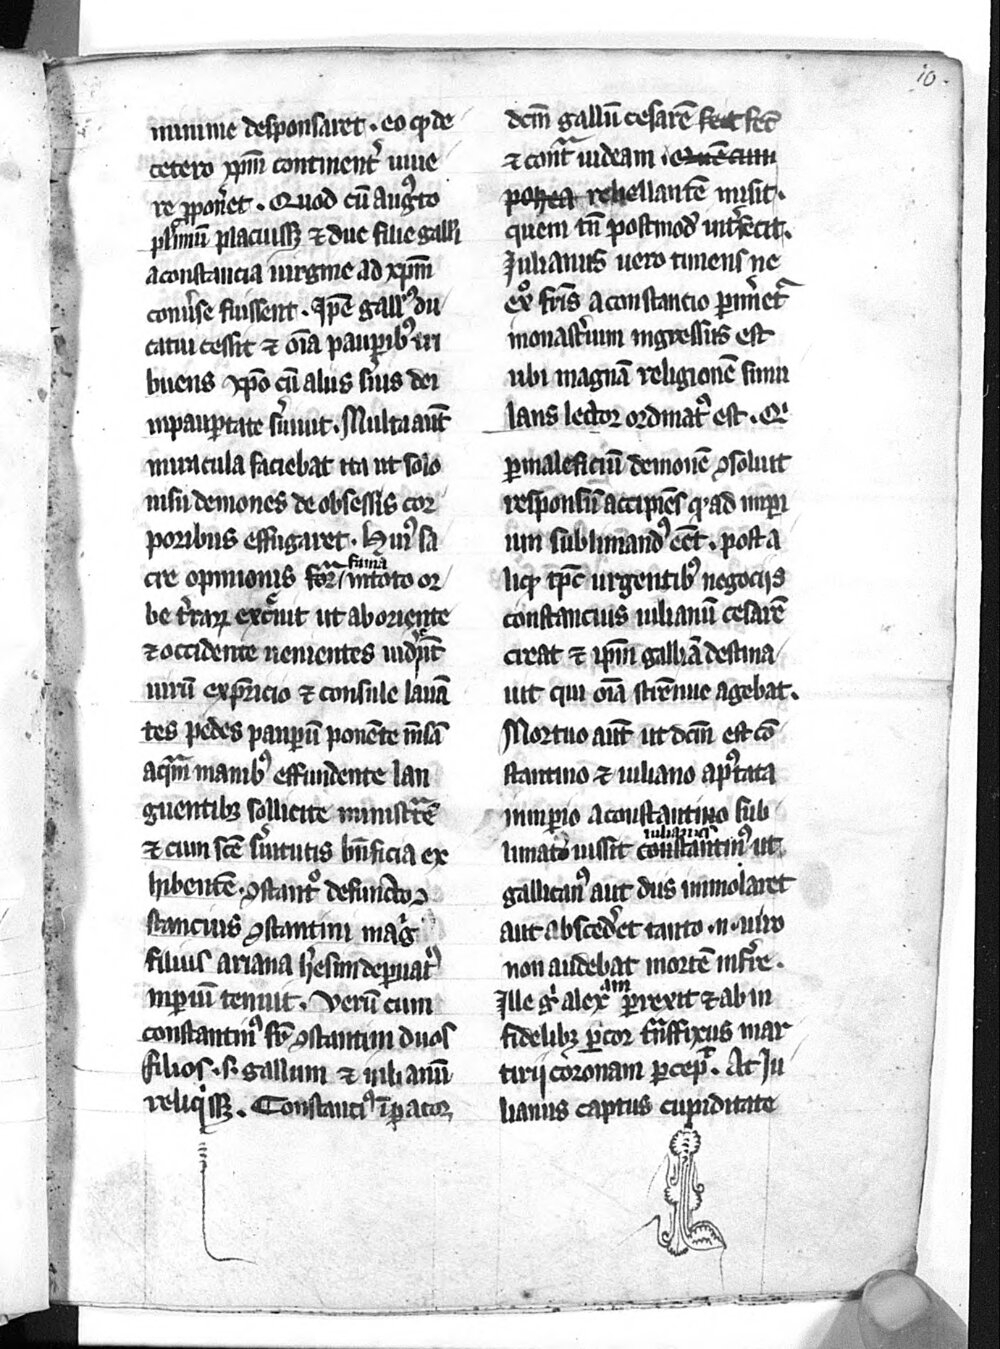 10.
minime desponsaret. eo qꝫ de
cetero xp̄m continent̉ uiue
re ꝓpon̉et. Quod cū augꝰto
pl̉imū placuissꝫ ⁊ due filie galli
a constancia uirgine ad xp̄m
conủse fuissent. Ip̄e gallꝰ du
catui cessit ⁊ oīa paup̲ibꝰ tri
buens xp̄o cū aliis s̉uis dei
in paup̲tate s̉uiuit. Multa aūt
miracula faciebat ita ut solo
uisu demones de obsessis cor
poribus effugaret. Huiꝰ sa
cre opinionis fama in toto or
be t̉raꝝ ut ab oriente
⁊ occidente uenientes uid̉ent
uirū ex pat̉icio ⁊ consule lauā
tes pedes paup̲ū ponēte m̄sā
aq̄m manibꝰ effundente lan
guentibꝫ sollicite ministrāte
⁊ cum sc̄e s̉uitutis bn̄ficia ex
hibentē. ꝯstantꝰ defuncto ꝯ
stancius ꝯstantini mag̉
filius ariana h̉esim dep̲uatꝰ
inp̲iū tenuit. Verū cum
constantinꝰ fr̄ ꝯstantini duos
filios .s. gallum ⁊ iulianū
reliq̉ssꝫ. Constanciꝰ īp̲ator
dc̄m gallū cesarē fecit
⁊ cont̄ iudeam
rebellantē misit.
quem tn̄ postmod̉ int̉fecit.
Julianus uero timens ne
exo fr̄is a constancio p̲imet̉
monast̉ium ingressus est
ubi magnā religionē simu
lans lector ordinatꝰ est. Q̉
p̲ maleficiū demonē ꝯsoluit
responsū accipiēs q̉ ad imp̲i
um sublimandꝰ eēt. post a
liqꝫ tp̄e urgentibꝰ negociis
constancius iulianū cesarē
creat ⁊ ip̄m galliā destina
uit qui oīa strēnue agebat.
Mortuo aūt ut dc̄m est cō
stantino ⁊ iuliano apꝰtata
in inp̲io a constantino sub
limatꝰ iussit iulianus ut
gallicanꝰ aut diis immolaret
aut absced̉et tanto .n. uiro
non audebat mortē inferre.
Ille g̉ alexam p̲rexit ⁊ ab in
fidelibꝫ p̲ cor trāsfixus mar
tirij coronam p̲cep̉. At Ju
lianus captus cupiditate